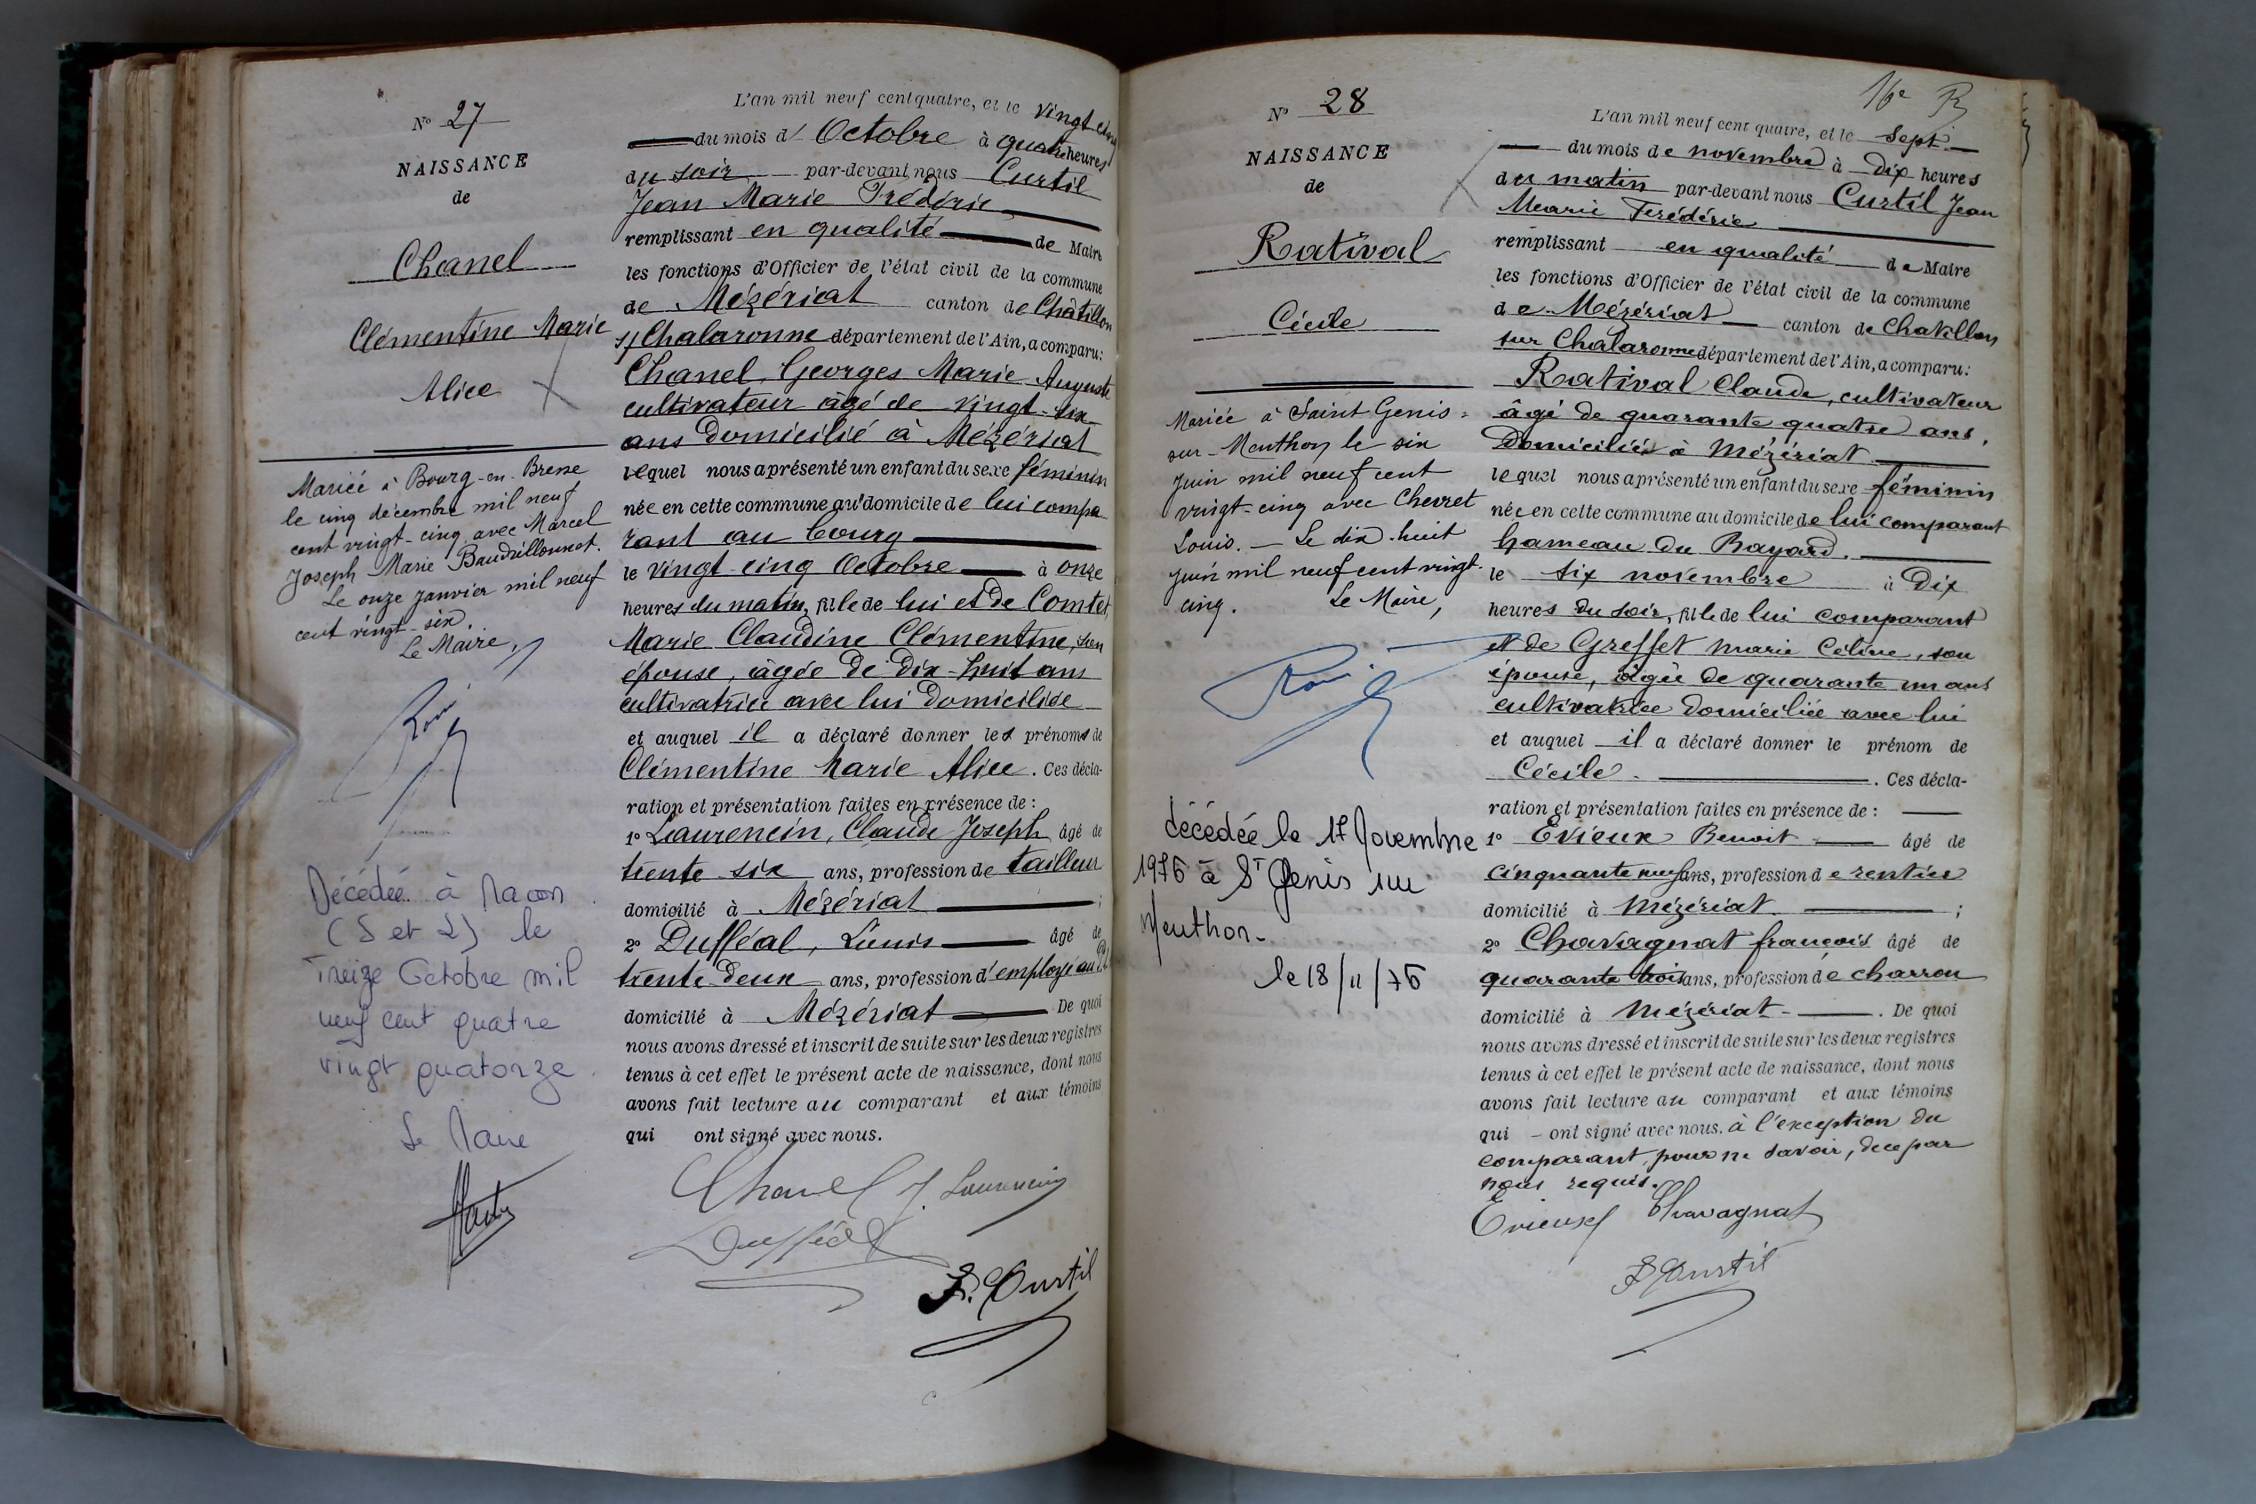 N° 27
NAISSANCE
de
Chanel
Clémentine Marie
Alice
Mariée à Bourg-en-Bresse
le cinq décembre mil neuf
cent vingt-cinq avec Marcel
Joseph Marie Baudrillonnet.
Le onze janvier mil neuf
cent vingt-six.
Le Maire,
Décédée à Macon
(S et L) le
Treize Octobre mil
neuf cent quatre
vingt quatorze
Le Maire
L'an mil neuf cent quatre, et le vingt cinq
du mois d'Octobre à quatre heures
du soir par-devant nous Curtil
Jean Marie Frédéric
remplissant en qualité de Maire
les fonctions d'Officier de l'état civil de la commune
de Mézériat canton de Chatillon
s/ Chalaronne département de l'Ain, a comparu:
Chanel Georges Marie Auguste
cultivateur âgé de vingt-six
ans domicilié à Mézériat
lequel nous a présenté un enfant du sexe féminin
née en cette commune au domicile de lui compa
rant au bourg
le vingt cinq Octobre à onze
heures du matin, fille de lui et de Comtet,
Marie Claudine Clémentine, son
épouse, âgée de dix-huit ans
cultivatrice avec lui domiciliée
et auquel il a déclaré donner les prénoms de
Clémentine Marie Alice. Ces décla-
ration et présentation faites en présence de :
1° Laurencin, Claude Joseph âgé de
trente six ans, profession de tailleur
domicilié à Mézériat ;
2° Dufféal, Louis âgé de
trente deux ans, profession d'employé au
domicilié à Mézériat. De quoi
nous avons dressé et inscrit de suite sur les deux registres
tenus à cet effet le présent acte de naissance, dont nous
avons fait lecture au comparant et aux témoins
qui ont signé avec nous.
Chanel J. Laurencin
Dufféal
F. Curtil
16e
N° 28
NAISSANCE
de
Ratival
Cécile
Mariée à Saint Genis-
sur-Menthon le six
juin mil neuf cent
vingt-cinq avec Chevret
Louis. — Le dix-huit
juin mil neuf cent vingt-
cinq. Le Maire,
décédée le 17 Novembre
1976 à St Genis sur
Menthon-
le 18/11/76
L'an mil neuf cent quatre, et le sept
du mois de novembre à dix heures
du matin par-devant nous Curtil Jean
Marie Frédéric
remplissant en qualité de Maire
les fonctions d'Officier de l'état civil de la commune
de Mézériat canton de Chatillon
sur Chalaronne département de l'Ain, a comparu:
Ratival Claude, cultivateur
âgé de quarante quatre ans,
domicilié à Mézériat
lequel nous a présenté un enfant du sexe féminin
née en cette commune au domicile de lui comparant
hameau du Bayard.
le six novembre à dix
heures du soir, fille de lui comparant
et de Greffet Marie Céline, son
épouse, âgée de quarante un ans
cultivatrice domiciliée avec lui
et auquel il a déclaré donner le prénom de
Cécile. Ces décla-
ration et présentation faites en présence de :
1° Evieux Benoit âgé de
cinquante neuf ans, profession de rentier
domicilié à Mézériat ;
2° Chavagnat françois âgé de
quarante trois ans, profession de charron
domicilié à Mézériat. De quoi
nous avons dressé et inscrit de suite sur les deux registres
tenus à cet effet le présent acte de naissance, dont nous
avons fait lecture au comparant et aux témoins
qui - ont signé avec nous. à l'exception du
comparant, pour ne savoir, de ce par
nous requis.
Evieux Chavagnat
F Curtil